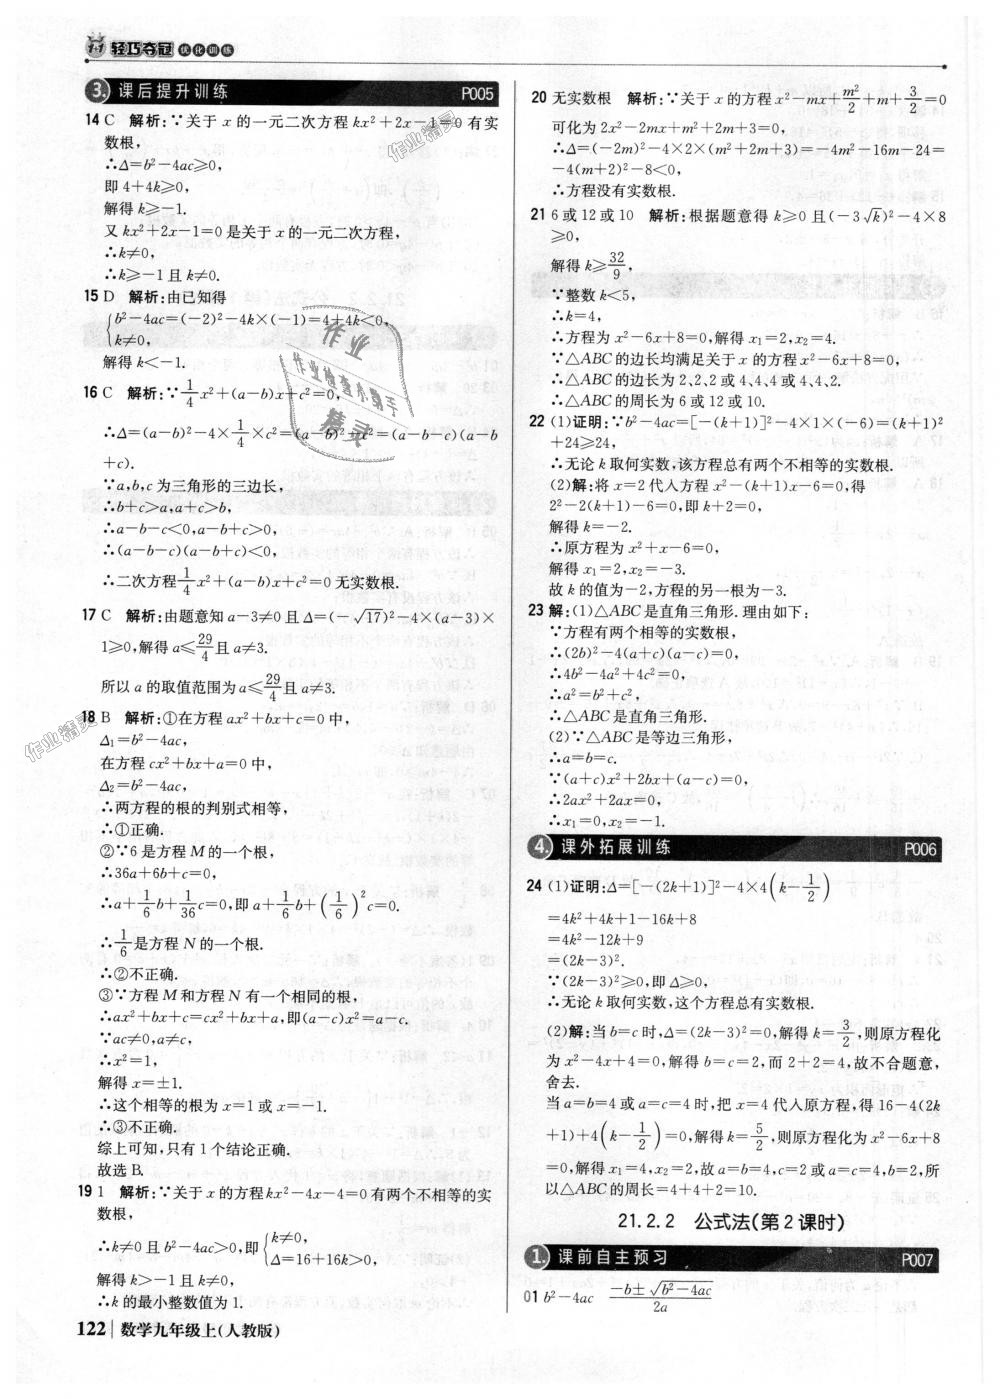 1+1 轻巧夺冠 优化训练
3. 课后提升训练 P005
14 C 解析:∵关于 x 的一元二次方程 kx²+2x-1=0 有实
数根,
∴Δ=b²-4ac≥0,
即 4+4k≥0,
解得 k≥-1.
又 kx²+2x-1=0 是关于 x 的一元二次方程,
∴k≠0,
∴k≥-1 且 k≠0.
15 D 解析:由已知得
{b²-4ac=(-2)²-4k×(-1)=4+4k<0,
k≠0,
解得 k<-1.
16 C 解析:∵1/4x²+(a-b)x+c²=0,
∴Δ=(a-b)²-4×1/4×c²=(a-b)²-c²=(a-b-c)(a-b
+c).
∵a,b,c 为三角形的三边长,
∴b+c>a,a+c>b,
∴a-b-c<0,a-b+c>0,
∴(a-b-c)(a-b+c)<0,
∴二次方程1/4x²+(a-b)x+c²=0 无实数根.
17 C 解析:由题意知 a-3≠0 且 Δ=(-√17)²-4×(a-3)×
1≥0,解得 a≤29/4且 a≠3.
所以 a 的取值范围为 a≤29/4且 a≠3.
18 B 解析:①在方程 ax²+bx+c=0 中,
Δ₁=b²-4ac,
在方程 cx²+bx+a=0 中,
Δ₂=b²-4ac,
∴两方程的根的判别式相等,
∴①正确.
②∵6 是方程 M 的一个根,
∴36a+6b+c=0,
∴a+1/6b+1/36c=0,即 a+1/6b+(1/6)²c=0.
∴1/6是方程 N 的一个根.
∴②不正确.
③∵方程 M 和方程 N 有一个相同的根,
∴ax²+bx+c=cx²+bx+a,即(a-c)x²=a-c.
∵ac≠0,a≠c,
∴x²=1,
解得 x=±1.
∴这个相等的根为 x=1 或 x=-1.
∴③不正确.
综上可知,只有 1 个结论正确.
故选 B.
19 1 解析:∵关于 x 的方程 kx²-4x-4=0 有两个不相等的实
数根,
∴k≠0 且 b²-4ac>0,即{k≠0,
Δ=16+16k>0,
解得 k>-1 且 k≠0,
∴k 的最小整数值为 1.
122 数学九年级上(人教版)
20 无实数根 解析:∵关于 x 的方程 x²-mx+m²/2+m+3/2=0
可化为 2x²-2mx+m²+2m+3=0,
∴Δ=(-2m)²-4×2×(m²+2m+3)=-4m²-16m-24=
-4(m+2)²-8<0,
∴方程没有实数根.
21 6 或 12 或 10 解析:根据题意得 k≥0 且(-3√k)²-4×8
≥0,
解得 k≥32/9,
∵整数 k<5,
∴k=4,
∴方程为 x²-6x+8=0,解得 x₁=2,x₂=4.
∵△ABC 的边长均满足关于 x 的方程 x²-6x+8=0,
∴△ABC 的边长为 2、2、2 或 4、4、4 或 4、4、2.
∴△ABC 的周长为 6 或 12 或 10.
22 (1)证明:∵b²-4ac=[-(k+1)]²-4×1×(-6)=(k+1)²
+24≥24,
∴无论 k 取何实数,该方程总有两个不相等的实数根.
(2)解:将 x=2 代入方程 x²-(k+1)x-6=0,得
2²-2(k+1)-6=0,即 k+2=0,
解得 k=-2.
∴原方程为 x²+x-6=0,
解得 x₁=2,x₂=-3.
故 k 的值为-2,方程的另一根为-3.
23 解:(1)△ABC 是直角三角形.理由如下:
∵方程有两个相等的实数根,
∴(2b)²-4(a+c)(a-c)=0,
∴4b²-4a²+4c²=0,
∴a²=b²+c²,
∴△ABC 是直角三角形.
(2)∵△ABC 是等边三角形,
∴a=b=c.
∵(a+c)x²+2bx+(a-c)=0,
∴2ax²+2ax=0,
∴x₁=0,x₂=-1.
4. 课外拓展训练 P006
24 (1)证明:Δ=[-(2k+1)]²-4×4(k-1/2)
=4k²+4k+1-16k+8
=4k²-12k+9
=(2k-3)².
∵(2k-3)²≥0,即 Δ≥0,
∴无论 k 取何实数,这个方程总有实数根.
(2)解:当 b=c 时,Δ=(2k-3)²=0,解得 k=3/2,则原方程化
为 x²-4x+4=0,解得 b=c=2,而 2+2=4,故不合题意,
舍去.
当 a=b=4 或 a=c=4 时,把 x=4 代入原方程,得 16-4(2k
+1)+4(k-1/2)=0,解得 k=5/2,则原方程化为 x²-6x+8
=0,解得 x₁=4,x₂=2,故 a=b=4,c=2 或 a=c=4,b=2,所
以△ABC 的周长=4+4+2=10.
21.2.2 公式法(第 2 课时)
1. 课前自主预习 P007
01 b²-4ac (-b±√(b²-4ac))/2a
作业精灵
作业精灵
作业
作业检查小助手
精灵